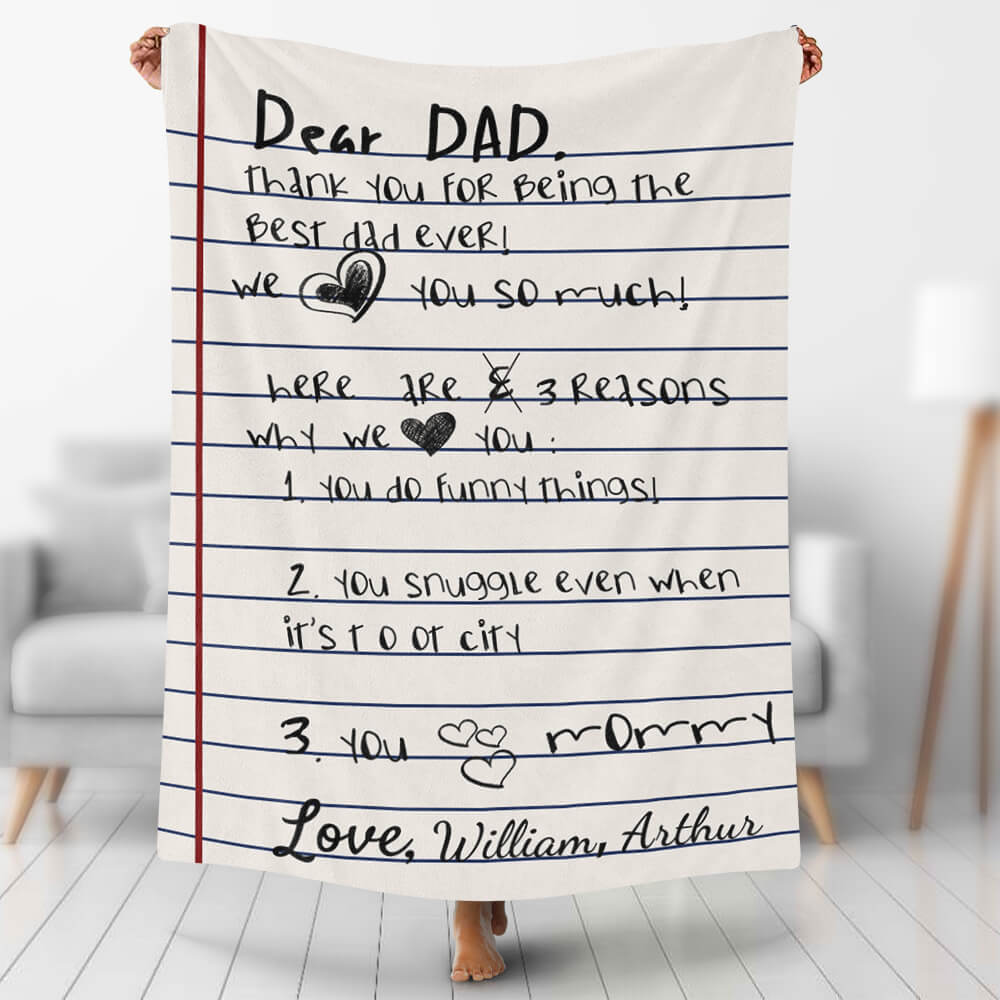 Dear DAD.
Thank you for being the
Best dad ever!
we you so much!
here are 3 Reasons
why we you :
1. you do funny things!
2. you snuggle even when
it's t o ot city
3. you mommy
Love, William, Arthur